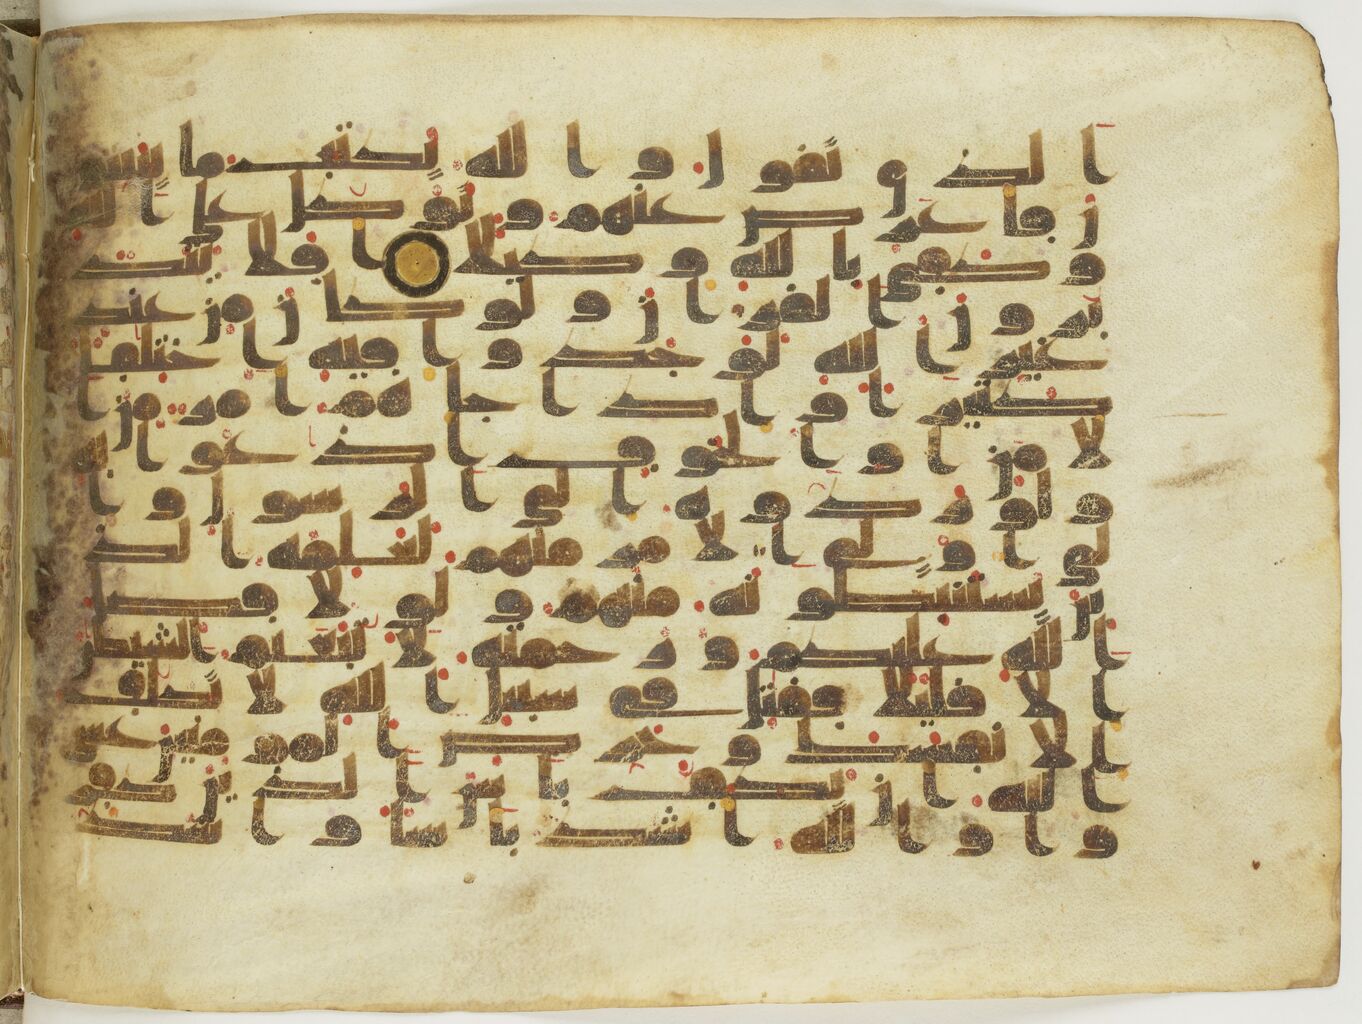 الذي تقول والله يكتب ما يبيتو
ن فاعرض عنهم وتوكل على الله
وكفى بالله وكيلا افلا يتد
برون القران ولو كان من عند
غير الله لوجدوا فيه اختلفا
كثيرا واذا جاهم امر من ا
لامن او الخوف اذاعوا به
ولو ردوه الى الرسول وا
لى اولى الامر منهم لعلمه الذ
ين يستنبطونه منهم ولولا فضل
الله عليكم ورحمته لاتبعتم الشيطن
الا قليلا فقتل في سبيل الله لا تكلف
الا نفسك وحرض المومنين عسى
الله ان يكف باس الذين كفرو
ا والله اشد باسا واشد